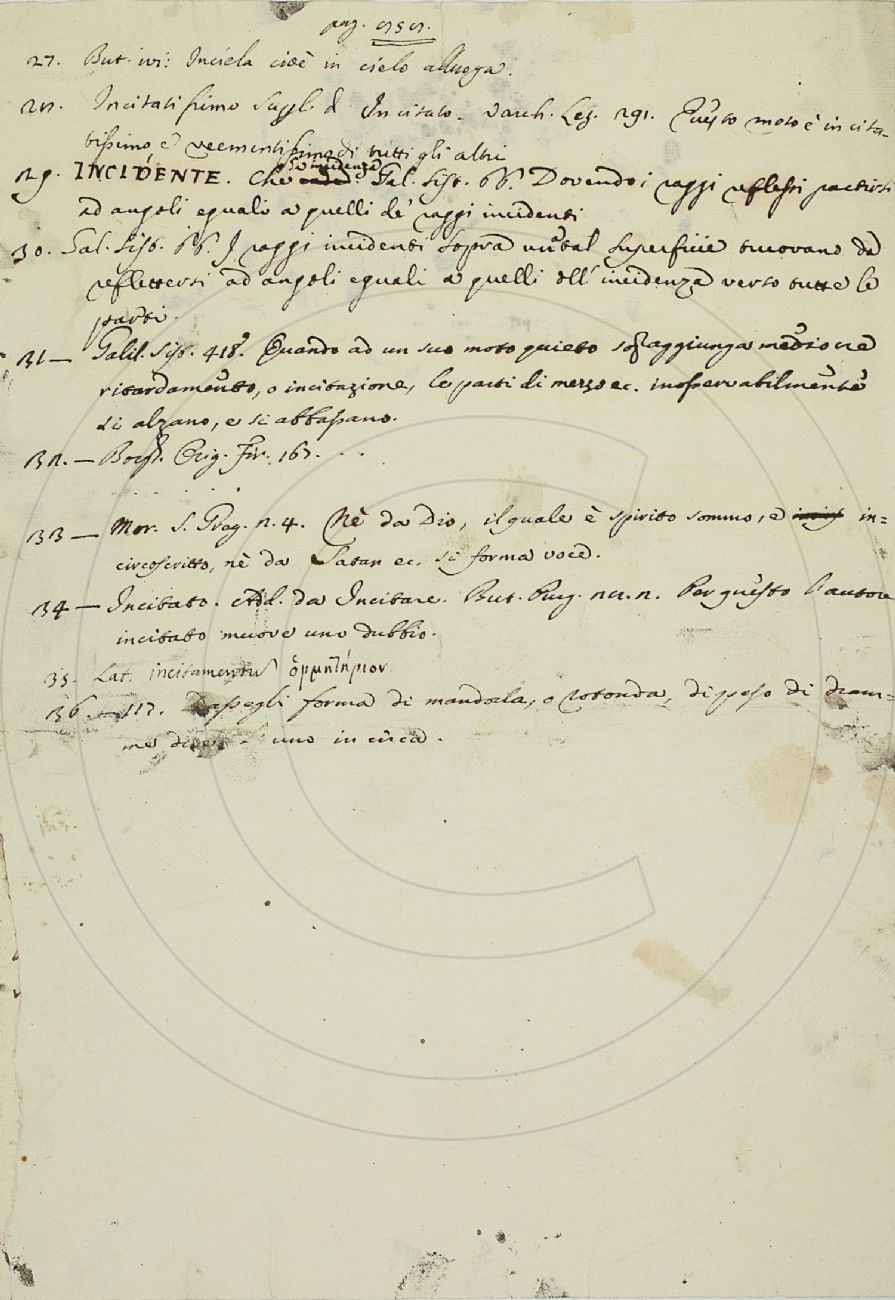 pag.
27. But. ivi: Inciela cioè in cielo alluoga.
Incitatissimo Superl. d Incitato. Varch. Lez. 291. Questo moto è incita-
tissimo e veementissimo di tutti gli altri
fa incidenza
29. INCIDENTE. Che Gal. Sist. 66. Dovendo i raggi reflessi partirsi
ad angoli eguali a quelli de' raggi incidenti
30. Gal. Sist. 66. I raggi incidenti sopra una tal superficie trovano da
reflettersi ad angoli eguali a quelli dell' incidenza verso tutte le
parti.
31— Galil. Sist. 418. Quando ad un suo moto quieto sopraggiunga mediocre
ritardamento, o incitazione, le parti di mezzo ec. inosservabilmente
si alzano, e si abbassano.
32.— Borgh. Orig. Fir. 167. . .
33— Mor. S. Greg. n. 4. Nè da Dio, il quale è spirito sommo, e in=
circoscritto, nè da Satan ec. si forma voce.
34— Incitato. Add. da Incitare. But. Purg. Per questo l'autore
incitato muove uno dubbio.
35. Lat. incitamentum ὁρμητήριον
36— 117. forma di mandorla, o rotonda, di peso di dram=
me uno in circa.